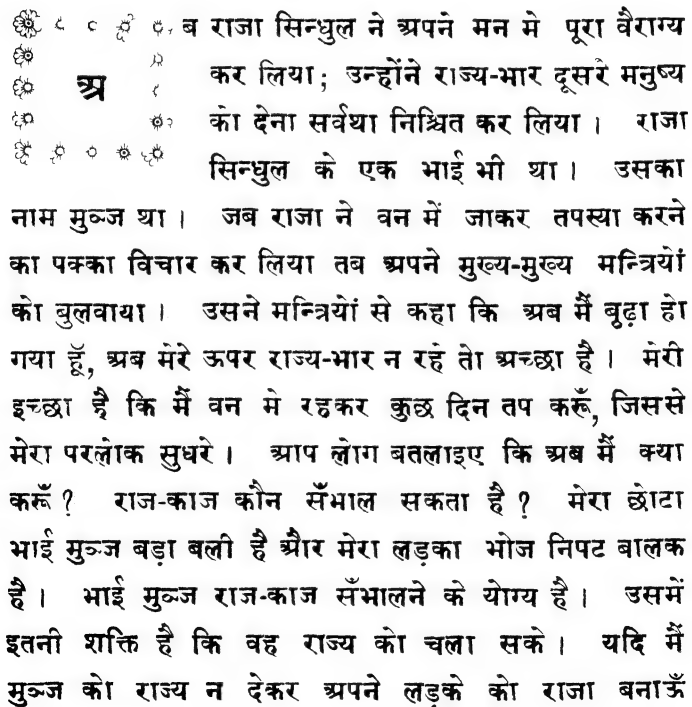 अब राजा सिन्धुल ने अपने मन मे पूरा वैराग्य
कर लिया; उन्होंने राज्य-भार दूसरे मनुष्य
को देना सर्वथा निश्चित कर लिया। राजा
सिन्धुल के एक भाई भी था। उसका
नाम मुञ्ज था। जब राजा ने वन में जाकर तपस्या करने
का पक्का विचार कर लिया तब अपने मुख्य-मुख्य मन्त्रियों
को बुलवाया। उसने मन्त्रियों से कहा कि अब मैं बूढ़ा हो
गया हूँ, अब मेरे ऊपर राज्य-भार न रहे तो अच्छा है। मेरी
इच्छा है कि मैं वन मे रहकर कुछ दिन तप करूँ, जिससे
मेरा परलोक सुधरे। आप लोग बतलाइए कि अब मैं क्या
करूँ? राज-काज कौन सँभाल सकता है? मेरा छोटा
भाई मुञ्ज बड़ा बली है और मेरा लड़का भोज निपट बालक
है। भाई मुञ्ज राज-काज सँभालने के योग्य है। उसमें
इतनी शक्ति है कि वह राज्य को चला सके। यदि मैं
मुञ्ज को राज्य न देकर अपने लड़के को राजा बनाऊँ